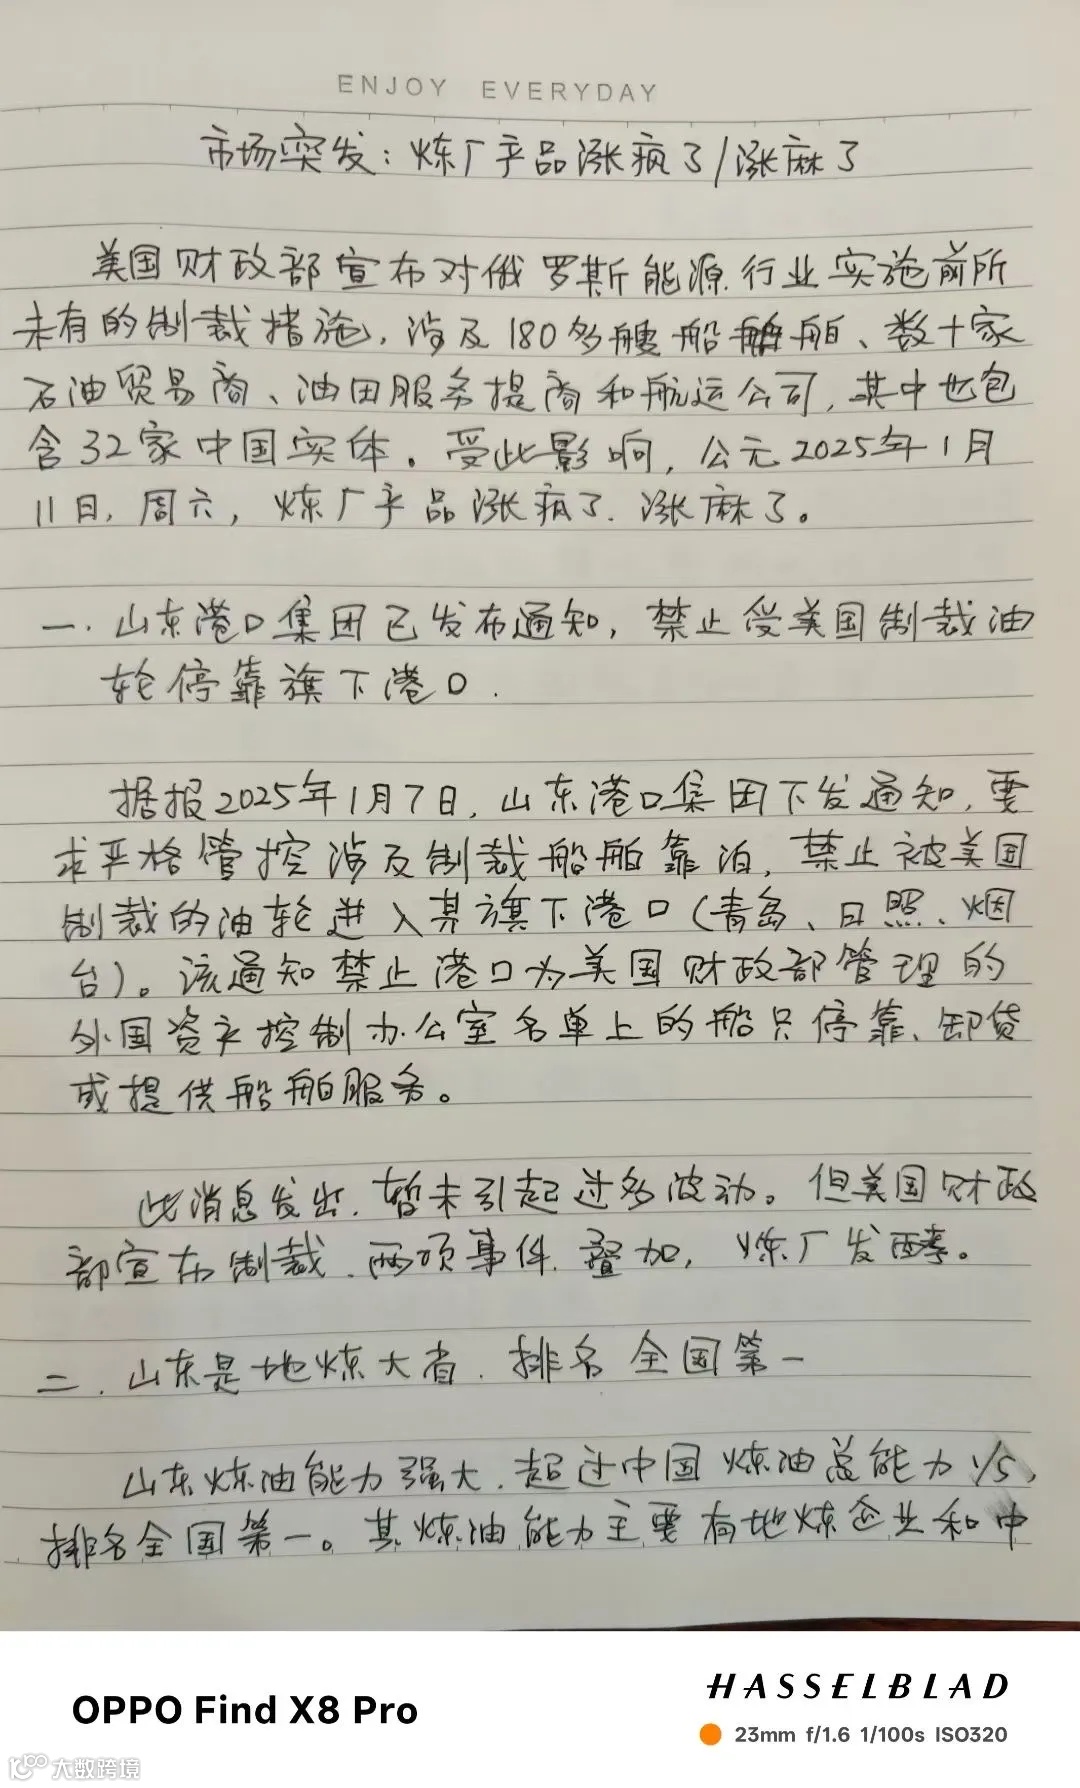 ENJOY EVERYDAY
市场突发：炼厂产品涨疯了/涨麻了
美国财政部宣布对俄罗斯能源行业实施前所
未有的制裁措施，涉及180多艘船舶、数十家
石油贸易商、油田服务提商和航运公司，其中也包
含32家中国实体。受此影响，公元2025年1月
11日，周六，炼厂产品涨疯了．涨麻了。
一．山东港口集团已发布通知，禁止受美国制裁油
轮停靠旗下港口．
据报2025年1月7日，山东港口集团下发通知，要
求严格管控涉及制裁船舶靠泊，禁止被美国
制裁的油轮进入其旗下港口（青岛、日照、烟
台）。该通知禁止港口为美国财政部管理的
外国资产控制办公室名单上的船只停靠、卸货
或提供船舶服务。
此消息发出，暂未引起过多波动。但美国财政
部宣布制裁．两项事件．叠加，炼厂发酵。
二．山东是地炼大省．排名全国第一
山东炼油能力强大．超过中国炼油总能力1/5，
排名全国第一。其炼油能力主要有地炼企业和中
OPPO Find X8 Pro
HASSELBLAD
23mm f/1.6 1/100s ISO320
大数跨境